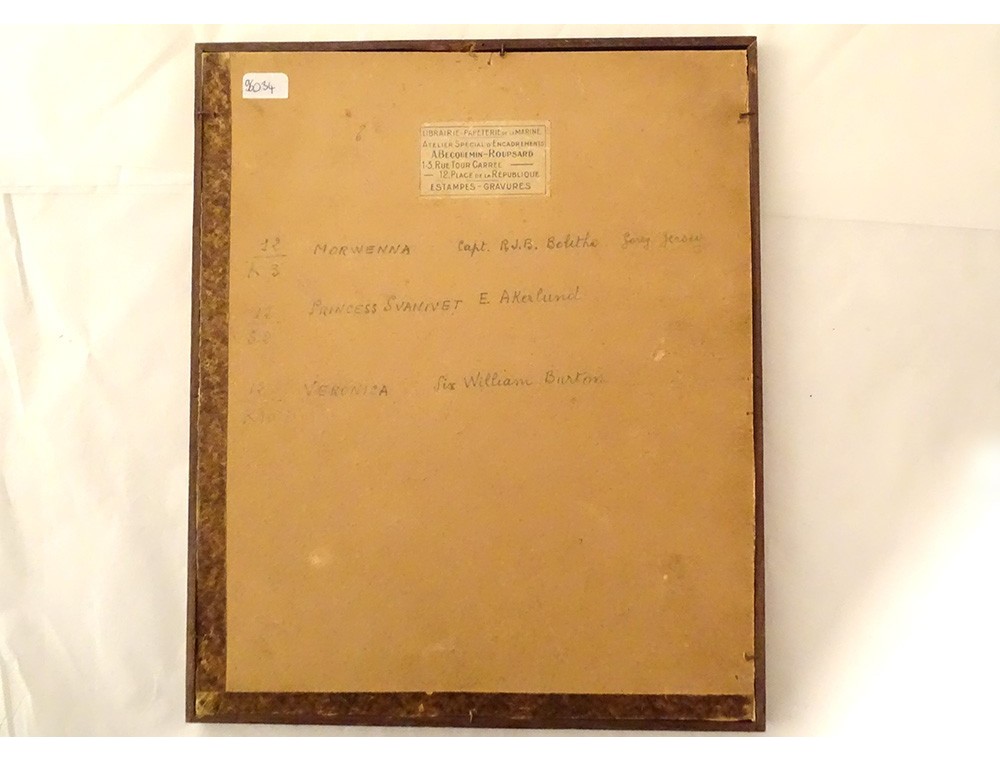 96034
LIBRAIRIE-PAPETERIE DE LA MARINE
ATELIER SPÉCIAL D'ENCADREMENTS
A.BECQUEMIN-ROUPSARD
13, RUE TOUR CARRÉE
12, PLACE DE LA RÉPUBLIQUE
ESTAMPES-GRAVURES
12 MORWENNA Capt. R.J.B. Bolitho Jersey
3
PRINCESS SVANIVET E AKerlund
12 VERONICA Six William Burton